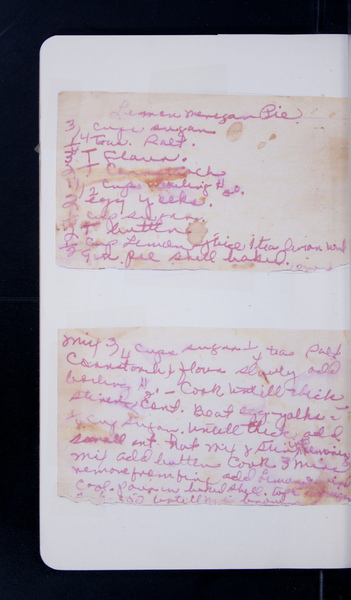 Lemon Merigan Pie
3/4 cups sugar
1/4 teas. Salt.
3 T Flour.
3 T
2 1/2 cups boiling H2O.
2 egg yolks.
cup sugar.
T butter
cup Lemon juice 1 tea lemon
9 in. pie shell baked.
Mix 3/4 cups sugar 1/4 teas Salt
Cornstarch & flour slowly add
boiling H2O. - Cook untill thick
stiring Cont. Beat egg yolks &
cup sugar. Untill thick add
small amt hot mix & stir in
mix add butter Cook 3 mins
remove from fire add lemon
Cool. Pour in baked shell. top
untill brown